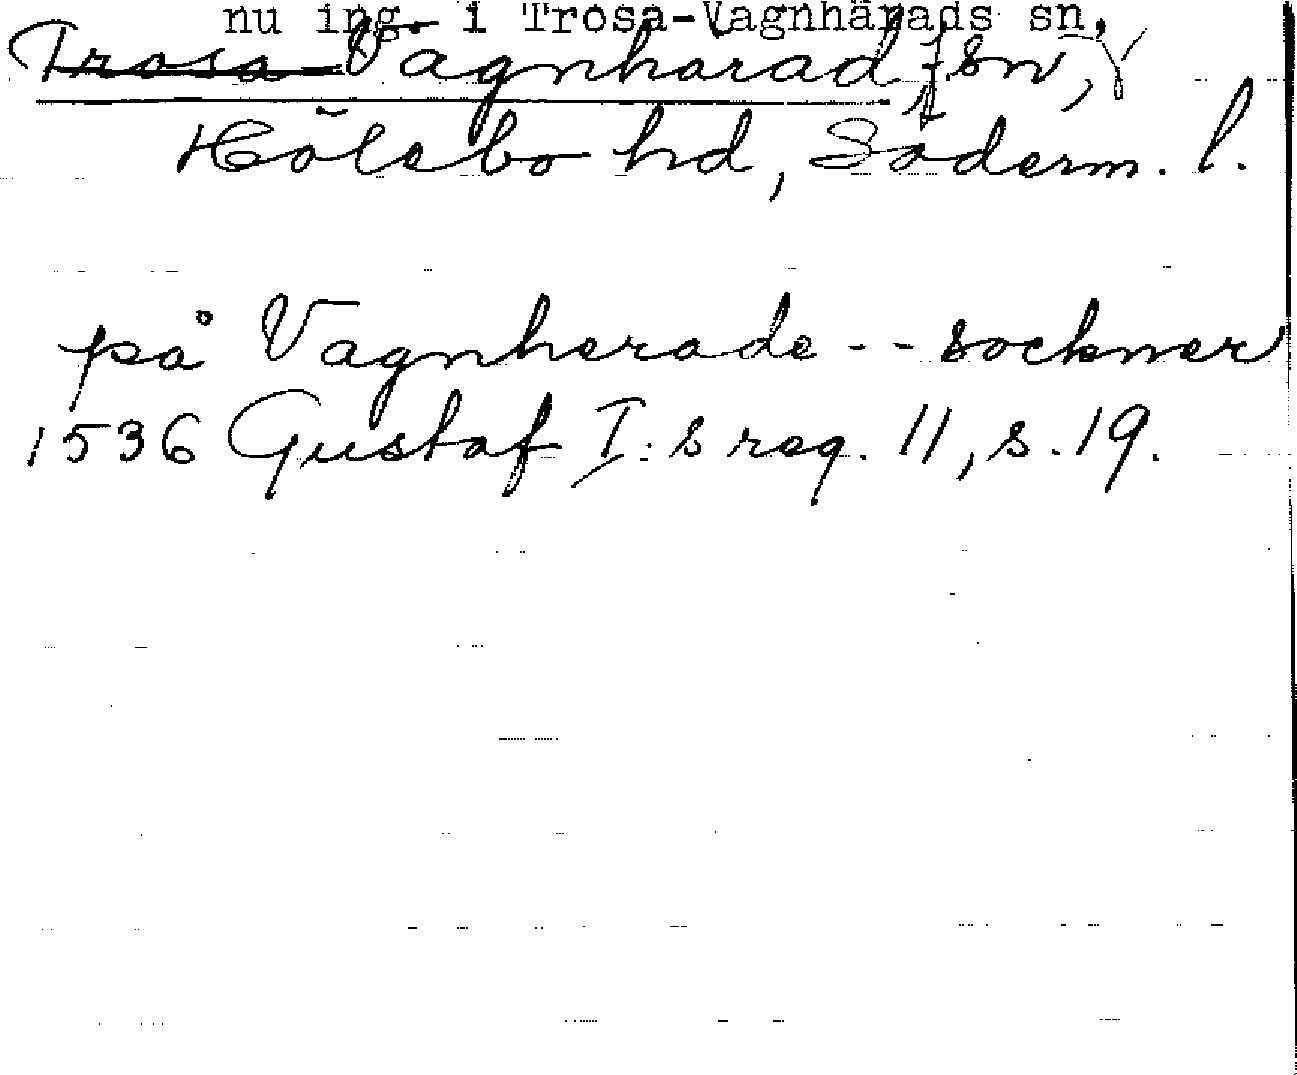 nu ing. i Trosa-Vagnhärads sn.
Trosa-Vagnhärad, sn,
Hölebo hd, Söderm. l.
på Vagnherade -- sockner
1536 Gustaf I:s reg. 11, s. 19.